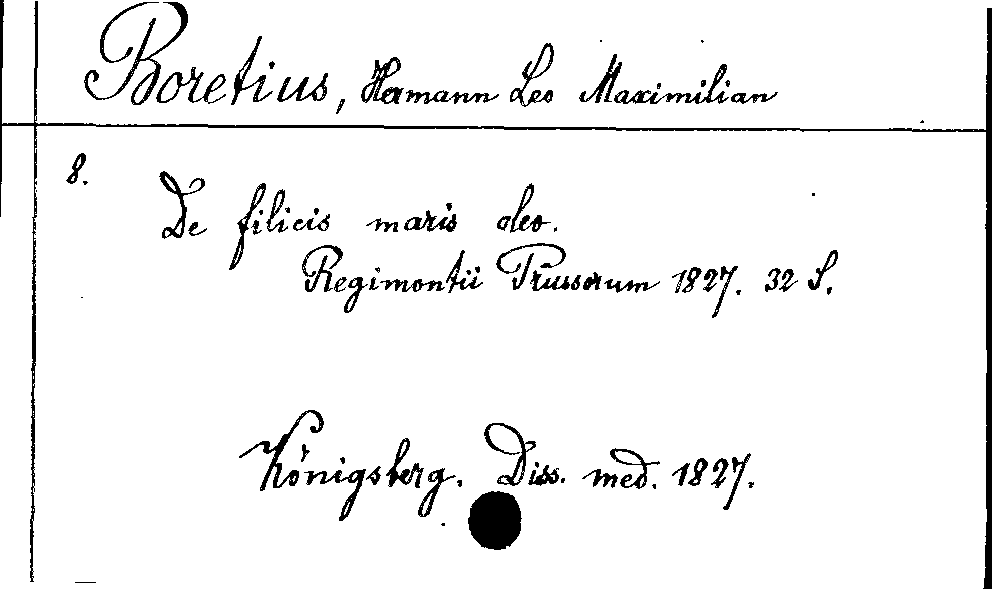 Boretius, Hermann Leo Maximilian
8.
De filicis maris oleo.
Regimontii Prussorum 1827. 32 S.
Königsberg. Diss. med. 1827.